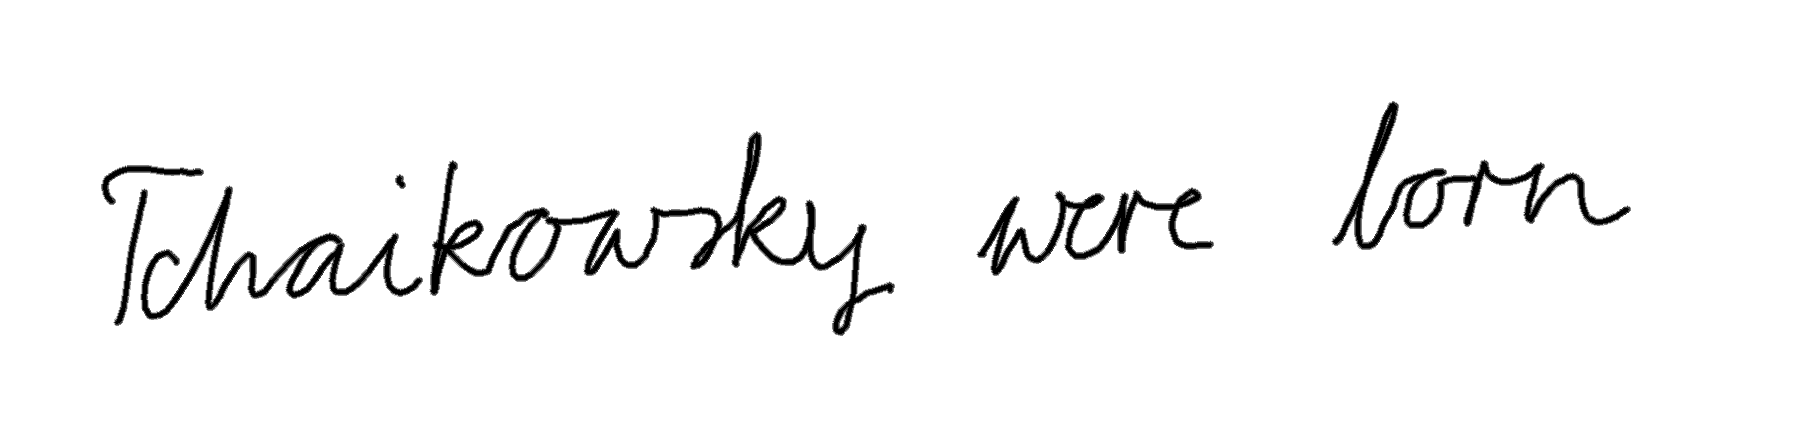 Tchaikowsky were born